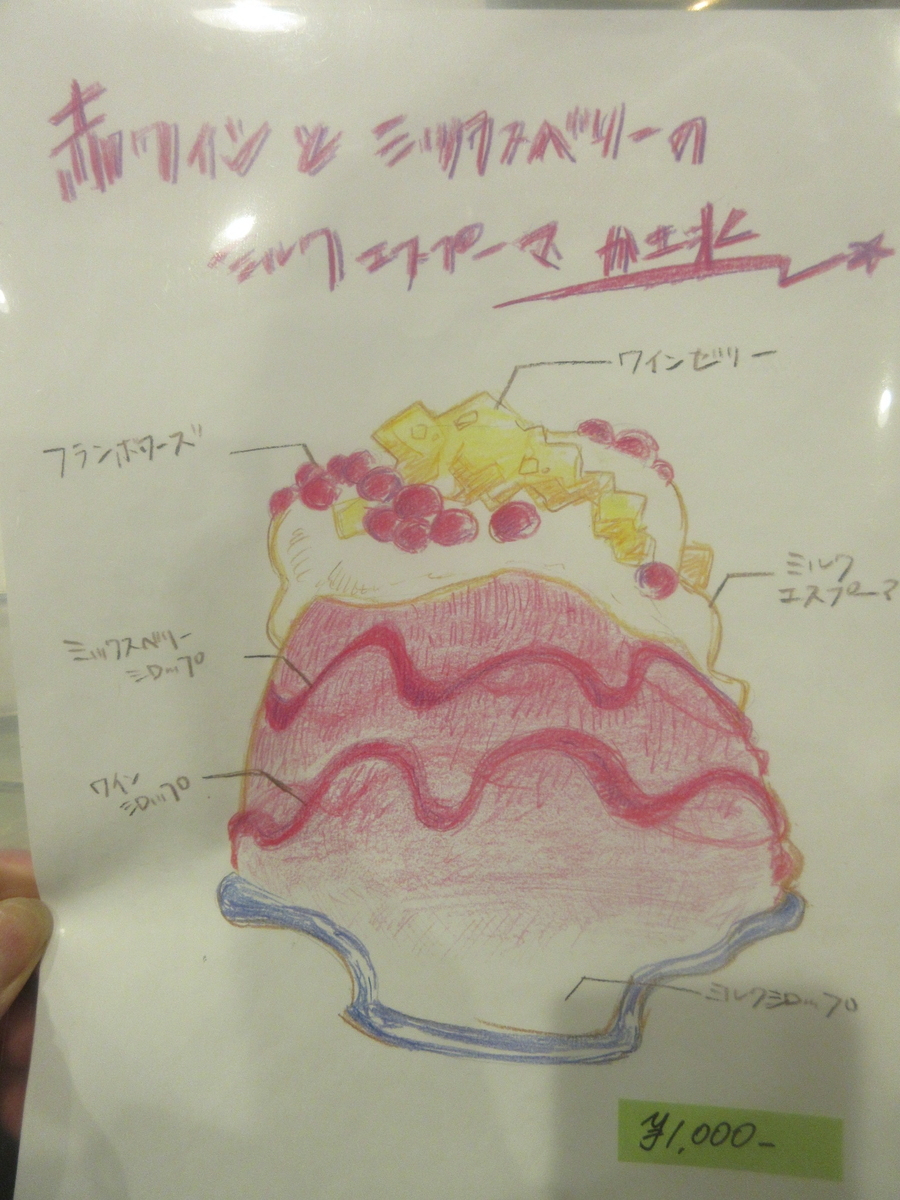 赤ワインとミックスベリーの
ミルクエスプーマかき氷
ワインゼリー
フランボワーズ
ミルク
エスプーマ
ミックスベリー
シロップ
ワイン
シロップ
ミルクシロップ
¥1,000-